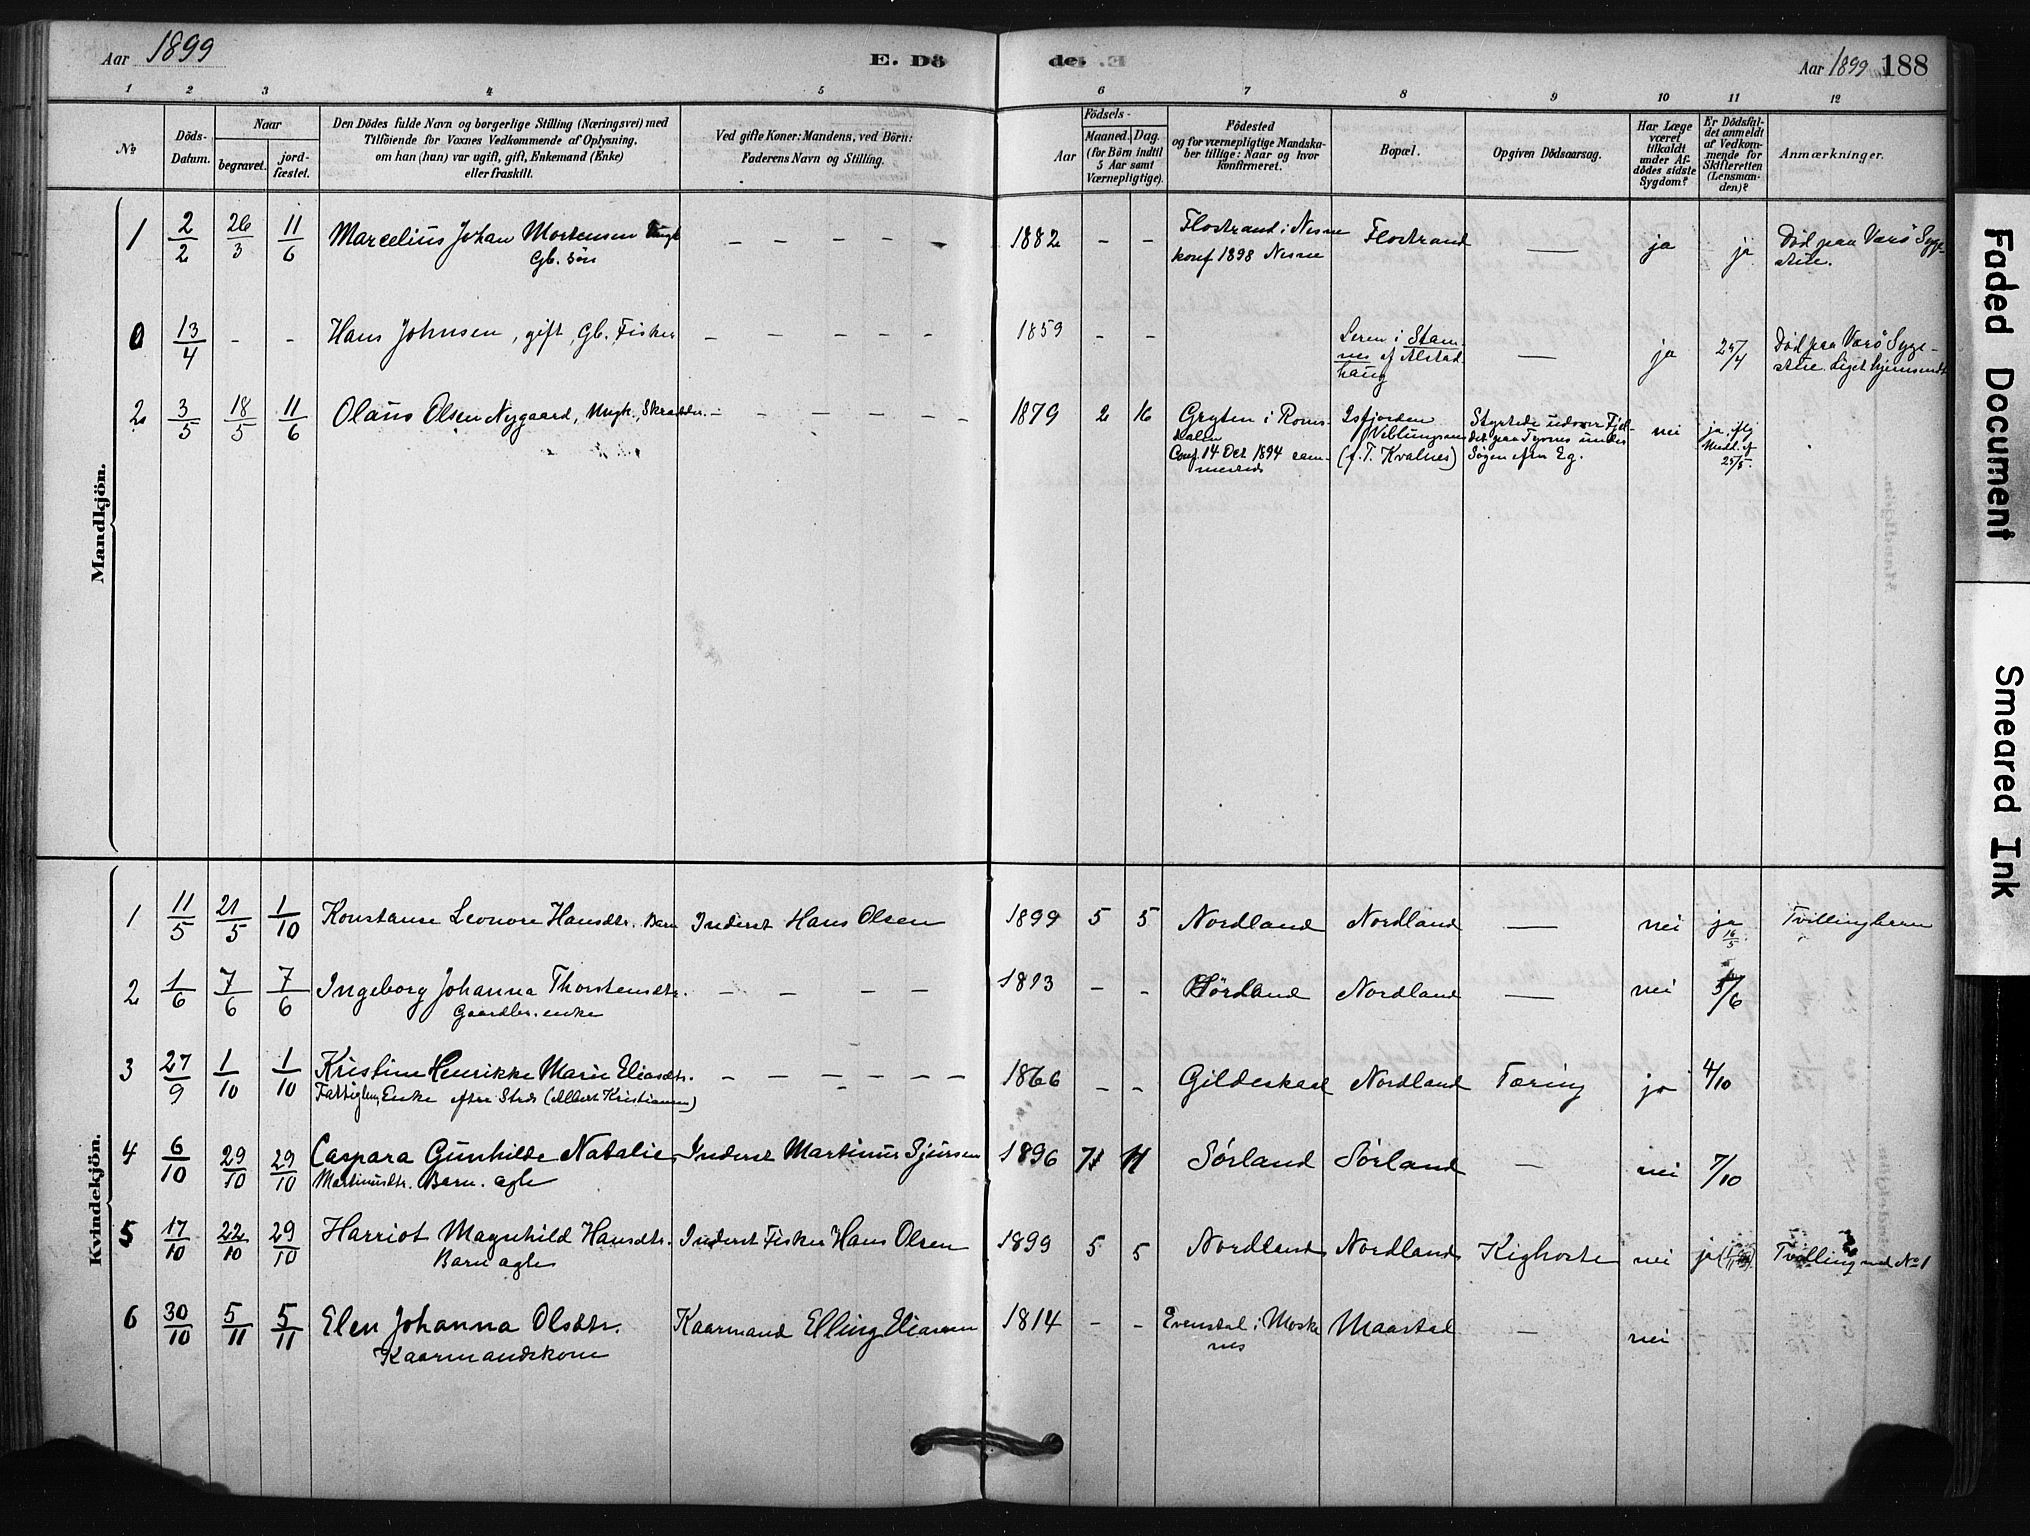 Aar 1899
E. Dö
de.
Aar 1899 188
1 2 3 4 5 6 7 8 9 10 11 12
No
Döds-
Datum.
Naar
begravet.
jord-
fæstet.
Den Dödes fulde Navn og borgerlige Stilling (Næringsvei) med
Tilföiende for Voxnes Vedkommende af Oplysning,
om han (hun) var ugift, gift, Enkemand (Enke)
eller fraskilt.
Ved gifte Koner: Mandens, ved Börn:
Faderens Navn og Stilling.
Födsels-
Aar
Maaned. Dag.
(for Börn indtil
5 Aar samt
Værnepligtige).
Födested
og for værnepligtige Mandska-
ber tillige: Naar og hvor
konfirmeret.
Bopæl.
Opgiven Dödsaarsag.
Har Læge
været
tilkaldt
under Af-
dödes sidste
Sygdom?
Er Dödsfal-
det anmeldt
af Vedkom-
mende for
Skifteretten
(Lensman-
den)?
Anmærkninger.
Mandkjön.
1 2/2 26/3 11/6 Marcelius Johan Mortensen Ungk – – – – – 1882 – – Flostrand i Nesne Flostrand — ja ja Död paa Værö Syge-
Gb. sön konf 1898 Nesne stue.
0 13/4 - - Hans Johnsen, gift, Gb. Fisker – – – – – 1859 – – Leren i Stam-
nes af Alstad-
haug — ja 25/4 Död paa Værö Syge-
stue. Liget hjemsendt
2 3/5 18/5 11/6 Olaus Olsen Nygaard, Ungk., Skrædder. – – – – – – 1879 2 16 Gryten i Roms-
dalen
Conf. 14 Oct 1894 sam-
mesteds
Isfjorden
Veblungsnes
(f. T. Kvalnes)
Styrtede udover Fjel-
det paa Tyvnes under
Søgen efter Eg.
nei
ja iflg
Medd. af
25/5.
Kvindekjön.
1 11/5 21/5 1/10 Konstanse Leonore Hansdtr. Barn Inderst Hans Olsen 1899 5 5 Nordland Nordland — nei ja 16/5 Tvillingbarn
2 1/6 7/6 7/6 Ingeborg Johanna Thorstensdtr. – – – – 1813 – – Sörland Nordland — nei 5/6
Gaardbr. enke
3 27/9 1/10 1/10 Kristine Henrikke Marie Eliasdtr. – – – – – – 1866 – – Gildeskaal Nordland Tæring ja 4/10
Fattiglem, Enke efter Strds (Albert Kristiansen)
4 6/10 29/10 29/10 Caspara Gunhilde Natalie Inderst Martinus Sjursen 1896 71 11 Sørland Sørland — nei 7/10
Martinusdtr. Barn. agte
5 17/10 22/10 29/10 Harriot Magnhild Hansdtr. Inderst Fisker Hans Olsen 1899 5 5 Nordland Nordland Kighoste nei ja Tvilling med No 1
Barn agte
6 30/10 5/11 5/11 Elen Johanna Olsdtr. Kaarmand Elling Eliassen 1814 – – Evenstal i Moske Maastad — nei
Kaarmandskone nes
Faded Document
Smeared Ink